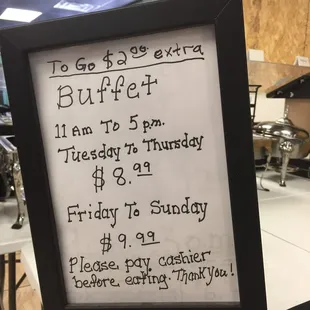 To Go $2.00 extra
Buffet
11 Am To 5 p.m.
Tuesday To Thursday
$8.99
Friday To Sunday
$9.99
Please pay cashier
before eating. Thank you!